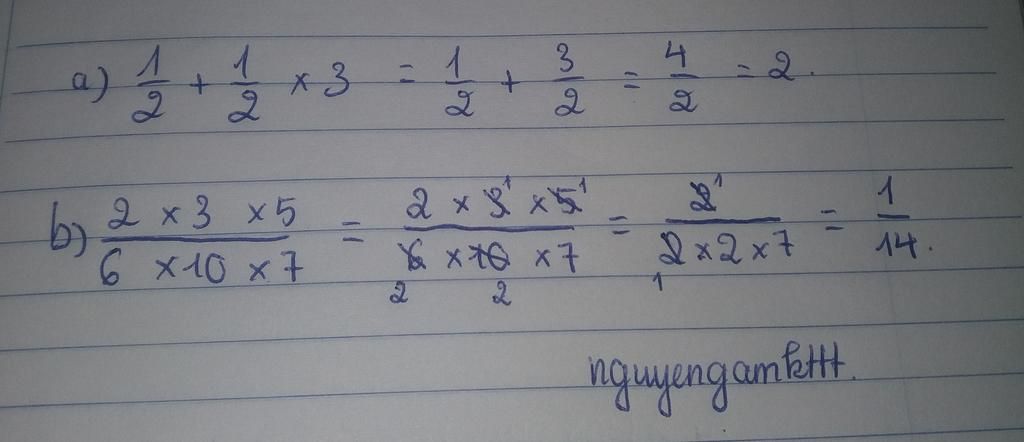 a) 1/2 + 1/2 × 3 = 1/2 + 3/2 = 4/2 = 2.
b) (2 × 3 × 5)/(6 × 10 × 7) = (2 × 3̸ 1 × 5̸ 1)/(6̸ 2 × 1̸0̸ 2 × 7) = 2̸ 1/(2̸ 1 × 2 × 7) = 1/14.
nguyengamkttt.